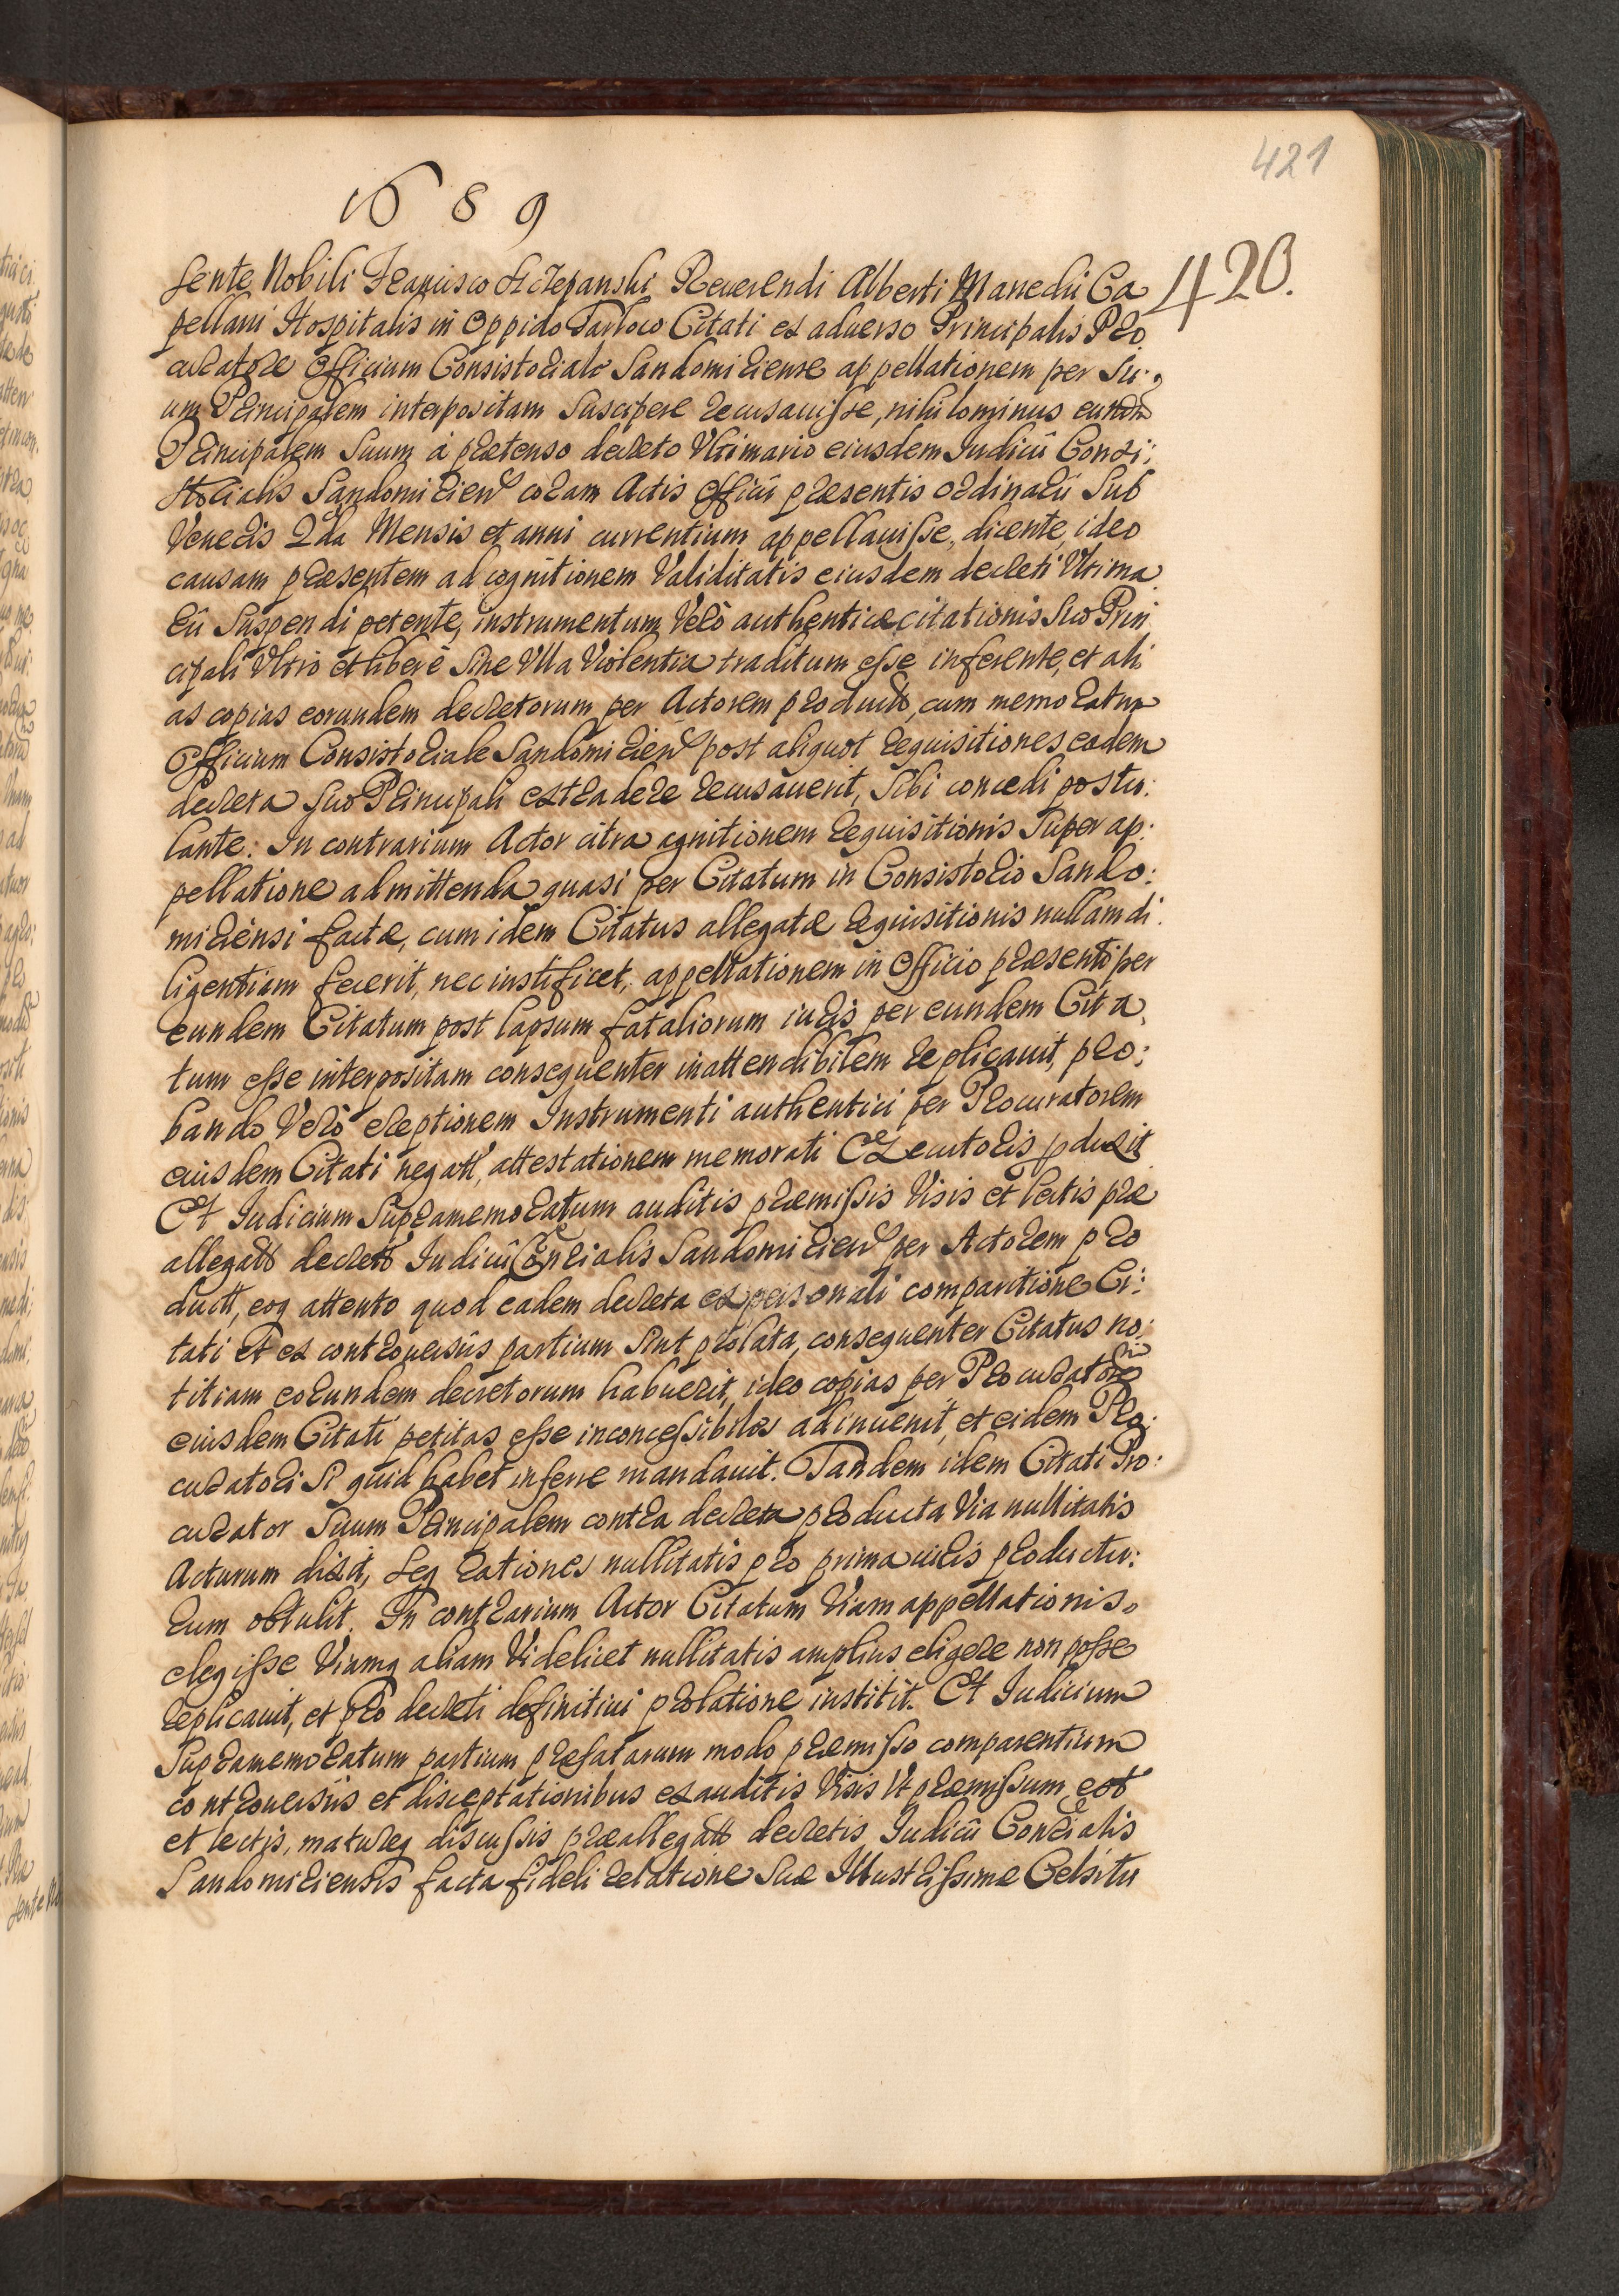 421
1689
420.
sente Nobili Francisco Szczepanski Reuerendi Alberti Manedii Ca
pellani Hospitalis in Oppido Tarlow Citati ex aduerso Principalis Pro
curatore Officium Consistoriale Sandomiriense appellationem per Su:
um Principalem interpositam Suscipere recusauisse, nihilominus eundem
Principalem Suum à prætenso decreto Vltimario eiusdem Iudicii Consi:
storialis Sandomirien coram Actis Officii præsentis ordinarii Sub
Veneris 2da Mensis et anni currentium appellauisse, dicente, ideo
causam præsentem ad cognitionem Validitatis eiusdem decreti Vltima
rii Suspendi petente, instrumentum Verò authenticæ citationis Suo Prin
cipali Vltrò et liberè Sine Vlla Violentia traditum esse inferente, et ali
as copias eorundem decretorum per Actorem product, cum memoratum
Officium Consistoriale Sandomirien post aliquot requisitiones eadem
decreta Suo Principali extradere recusauerit, Sibi concedi postu:
lante: In contrarium Actor citra agnitionem requisitionis Super ap:
pellatione admittenda quasi per Citatum in Consistorio Sando:
miriensi factæ, cum idem Citatus allegatæ requisitionis nullam di:
ligentiam fecerit, nec iustificet, appellationem in Officio præsenti per
eundem Citatum post lapsum fataliorum iuris per eundem Cita
tum esse interpositam consequenter inattendibilem replicauit, pro:
bando Verò ereptionem Instrumenti authentici per Procuratorem
eiusdem Citati negatt, attestationem memorati Executoris pduxit
Et Iudicium Supramemoratum auditis præmissis Visis et lectis præ
allegatt decrett Iudicii Conrialis Sandomirien per Actorem pro
ductt, eoq attento quod eadem decreta ex personali comparitione Ci:
tati Et ex controuersiis partium Sint prolata, consequenter Citatus no:
titiam eorundem decretorum habuerit, ideo copias per Procuratorem
eiusdem Citati petitas esse inconcessibiles adinuenit, et eidem Pro:
curatori Si quid habet inferre mandauit. Tandem idem Citati Pro:
curator Suum Principalem contra decreta producta Via nullitatis
Acturum dixit, Seq rationes nullitatis pro prima iuris productu:
rum obtulit. In contrarium Actor Citatum Viam appellationis
elegisse Viamq aliam Videlicet nullitatis amplius eligere non posse
replicauit, et pro decreti definitiui prolatione institit. Et Iudicium
Supramemoratum partium præfatarum modo præmisso comparentium
controuersiis et disceptationibus exauditis Visis Vt præmissum est
et lectis, matureq discussis præallegatt decretis Iudicii Conrialis
Sandomiriensis facta fideli relatione Suæ Illustrissimæ Celsitu